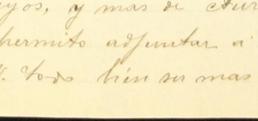 yos, y mas de
permito adjuntar á
todo bien ser mas